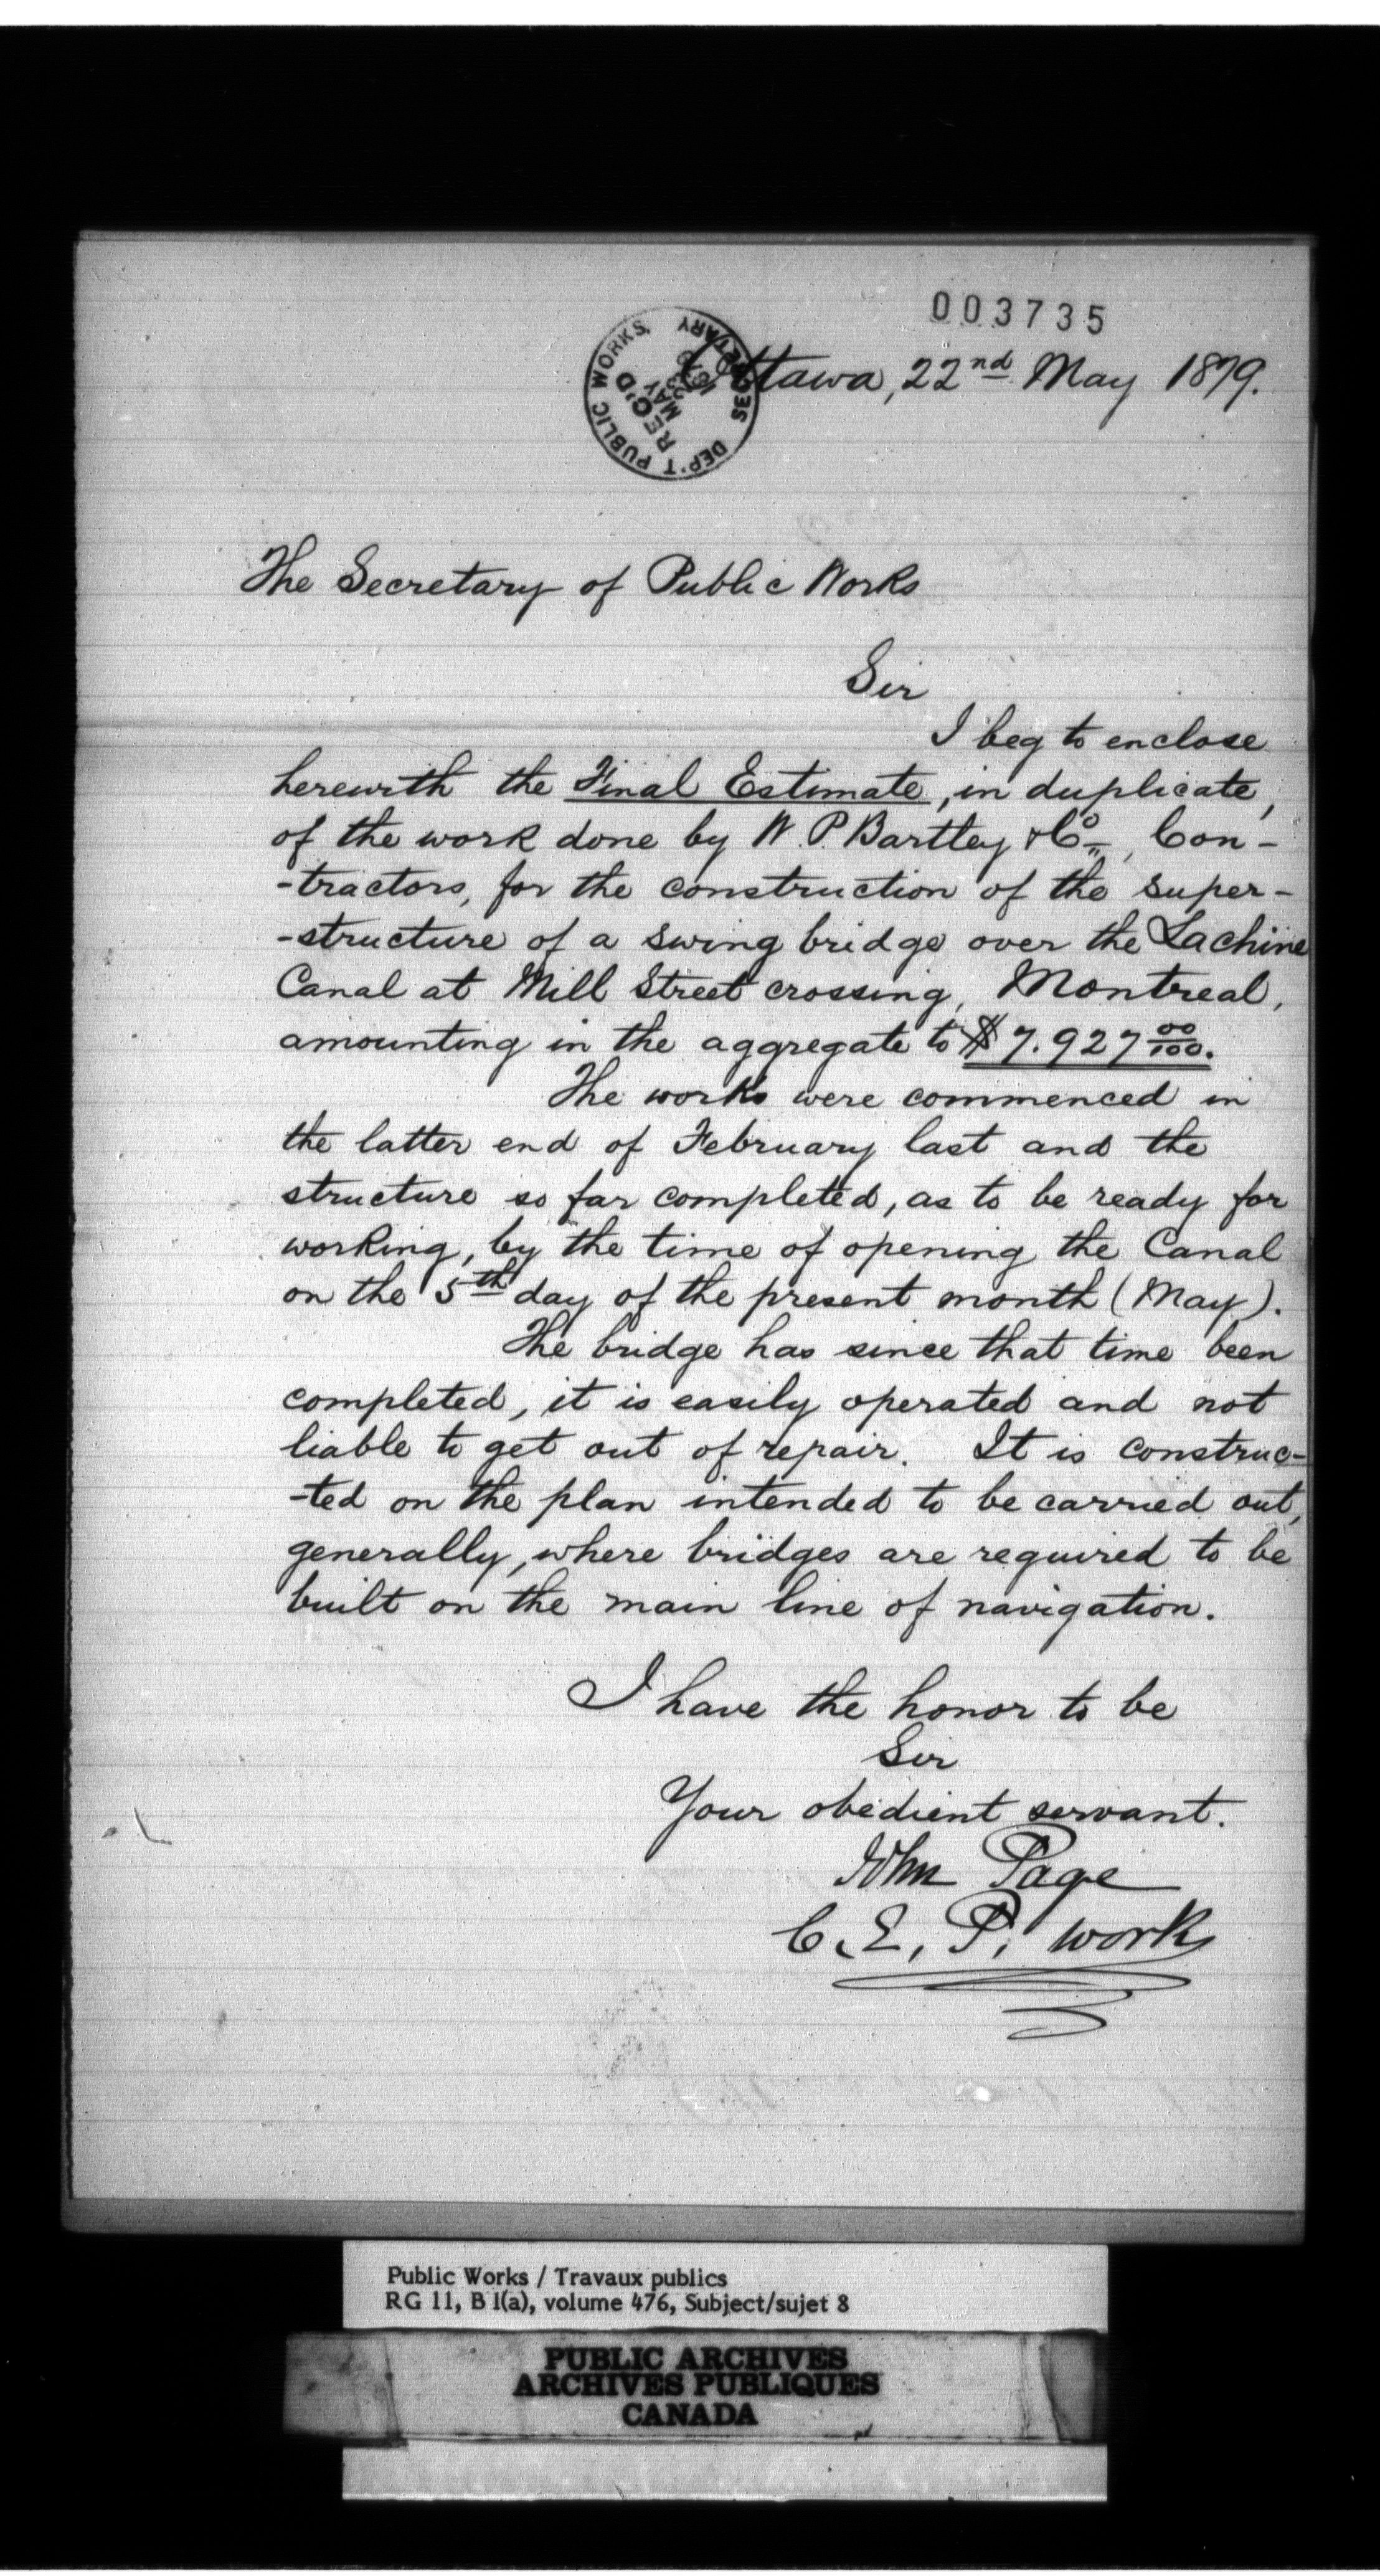 003735
DEP'T PUBLIC WORKS, SECRETARY
REC'D
MAY
23
1879
Ottawa, 22nd May 1879.
The Secretary of Public Works
Sir
I beg to enclose
herewith the Final Estimate, in duplicate,
of the work done by W. P. Bartley & Co, Con-
-tractors, for the construction of the super-
-structure of a swing bridge over the Lachine
Canal at Mill Street crossing, Montreal,
amounting in the aggregate to $7.927 00/100.
The works were commenced in
the latter end of February last and the
structure so far completed, as to be ready for
working, by the time of opening the Canal
on the 5th day of the present month (May).
The bridge has since that time been
completed, it is easily operated and not
liable to get out of repair. It is construc-
-ted on the plan intended to be carried out,
generally, where bridges are required to be
built on the main line of navigation.
I have the honor to be
Sir
Your obedient servant.
John Page
C. E. P. Works
Public Works / Travaux publics
RG 11, B 1(a), volume 476, Subject/sujet 8
PUBLIC ARCHIVES
ARCHIVES PUBLIQUES
CANADA